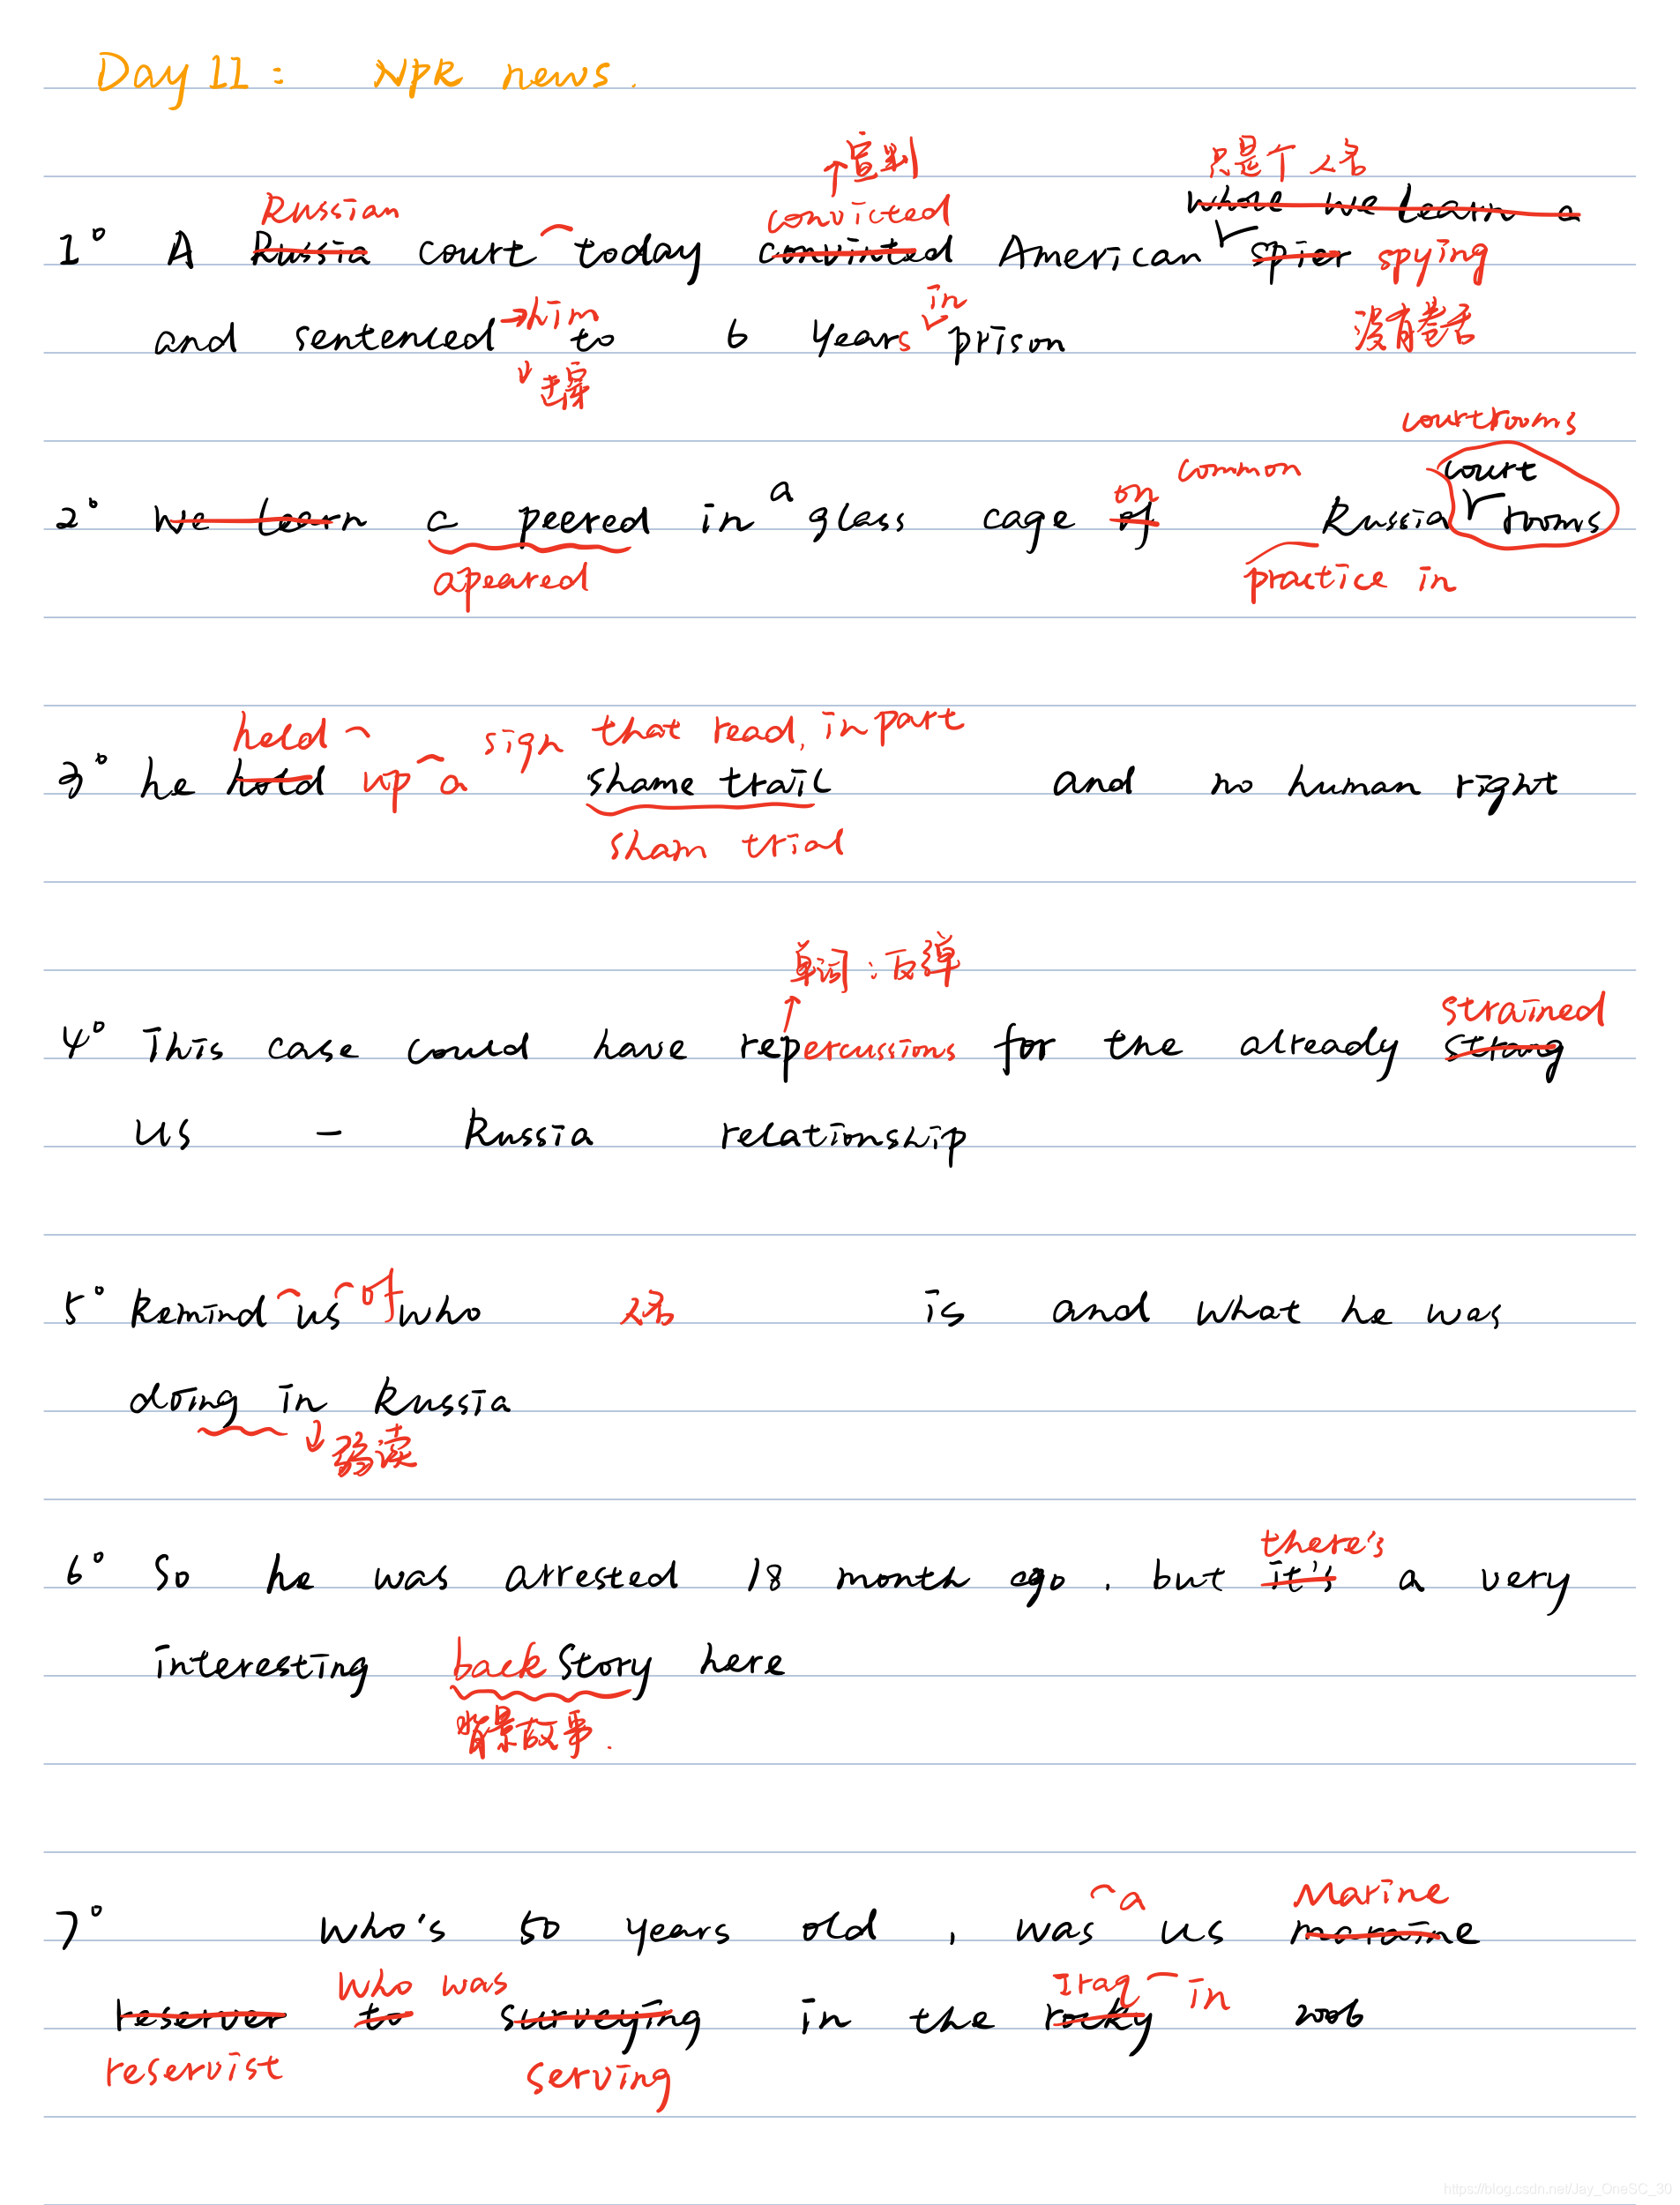 Day 11: NPR news.
↑宣判 只是个人名
Russian convicted whole we learn a
1° A Russia court today convinted American spier spying
→him in 没有卷舌
and sentenced to 6 years prison
↓连穿
courtrooms
on common court
2° We learn a peered in a glass cage of Russia rooms
apeared practice in
held sign that read, in part
3° he hold up a shame trail and no human right
sham trial
单词:反弹
strained
4° This case could have repercussions for the already strang
US - Russia relationship
5° Remind us of who 人名 is and what he was
doing in Russia
↓弱读
there's
6° So he was arrested 18 month ago, but it's a very
interesting back story here
背景故事.
a Marine
7° who's 50 years old, was us maraine
who was Iraq in
reserver to surveying in the rocky 2006
reservist serving
https://blog.csdn.net/Jay_OneSC_30